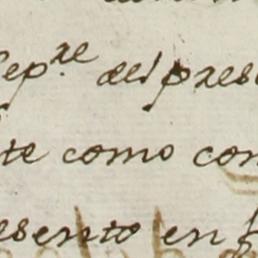 sep.re del prese
te como con
esento en